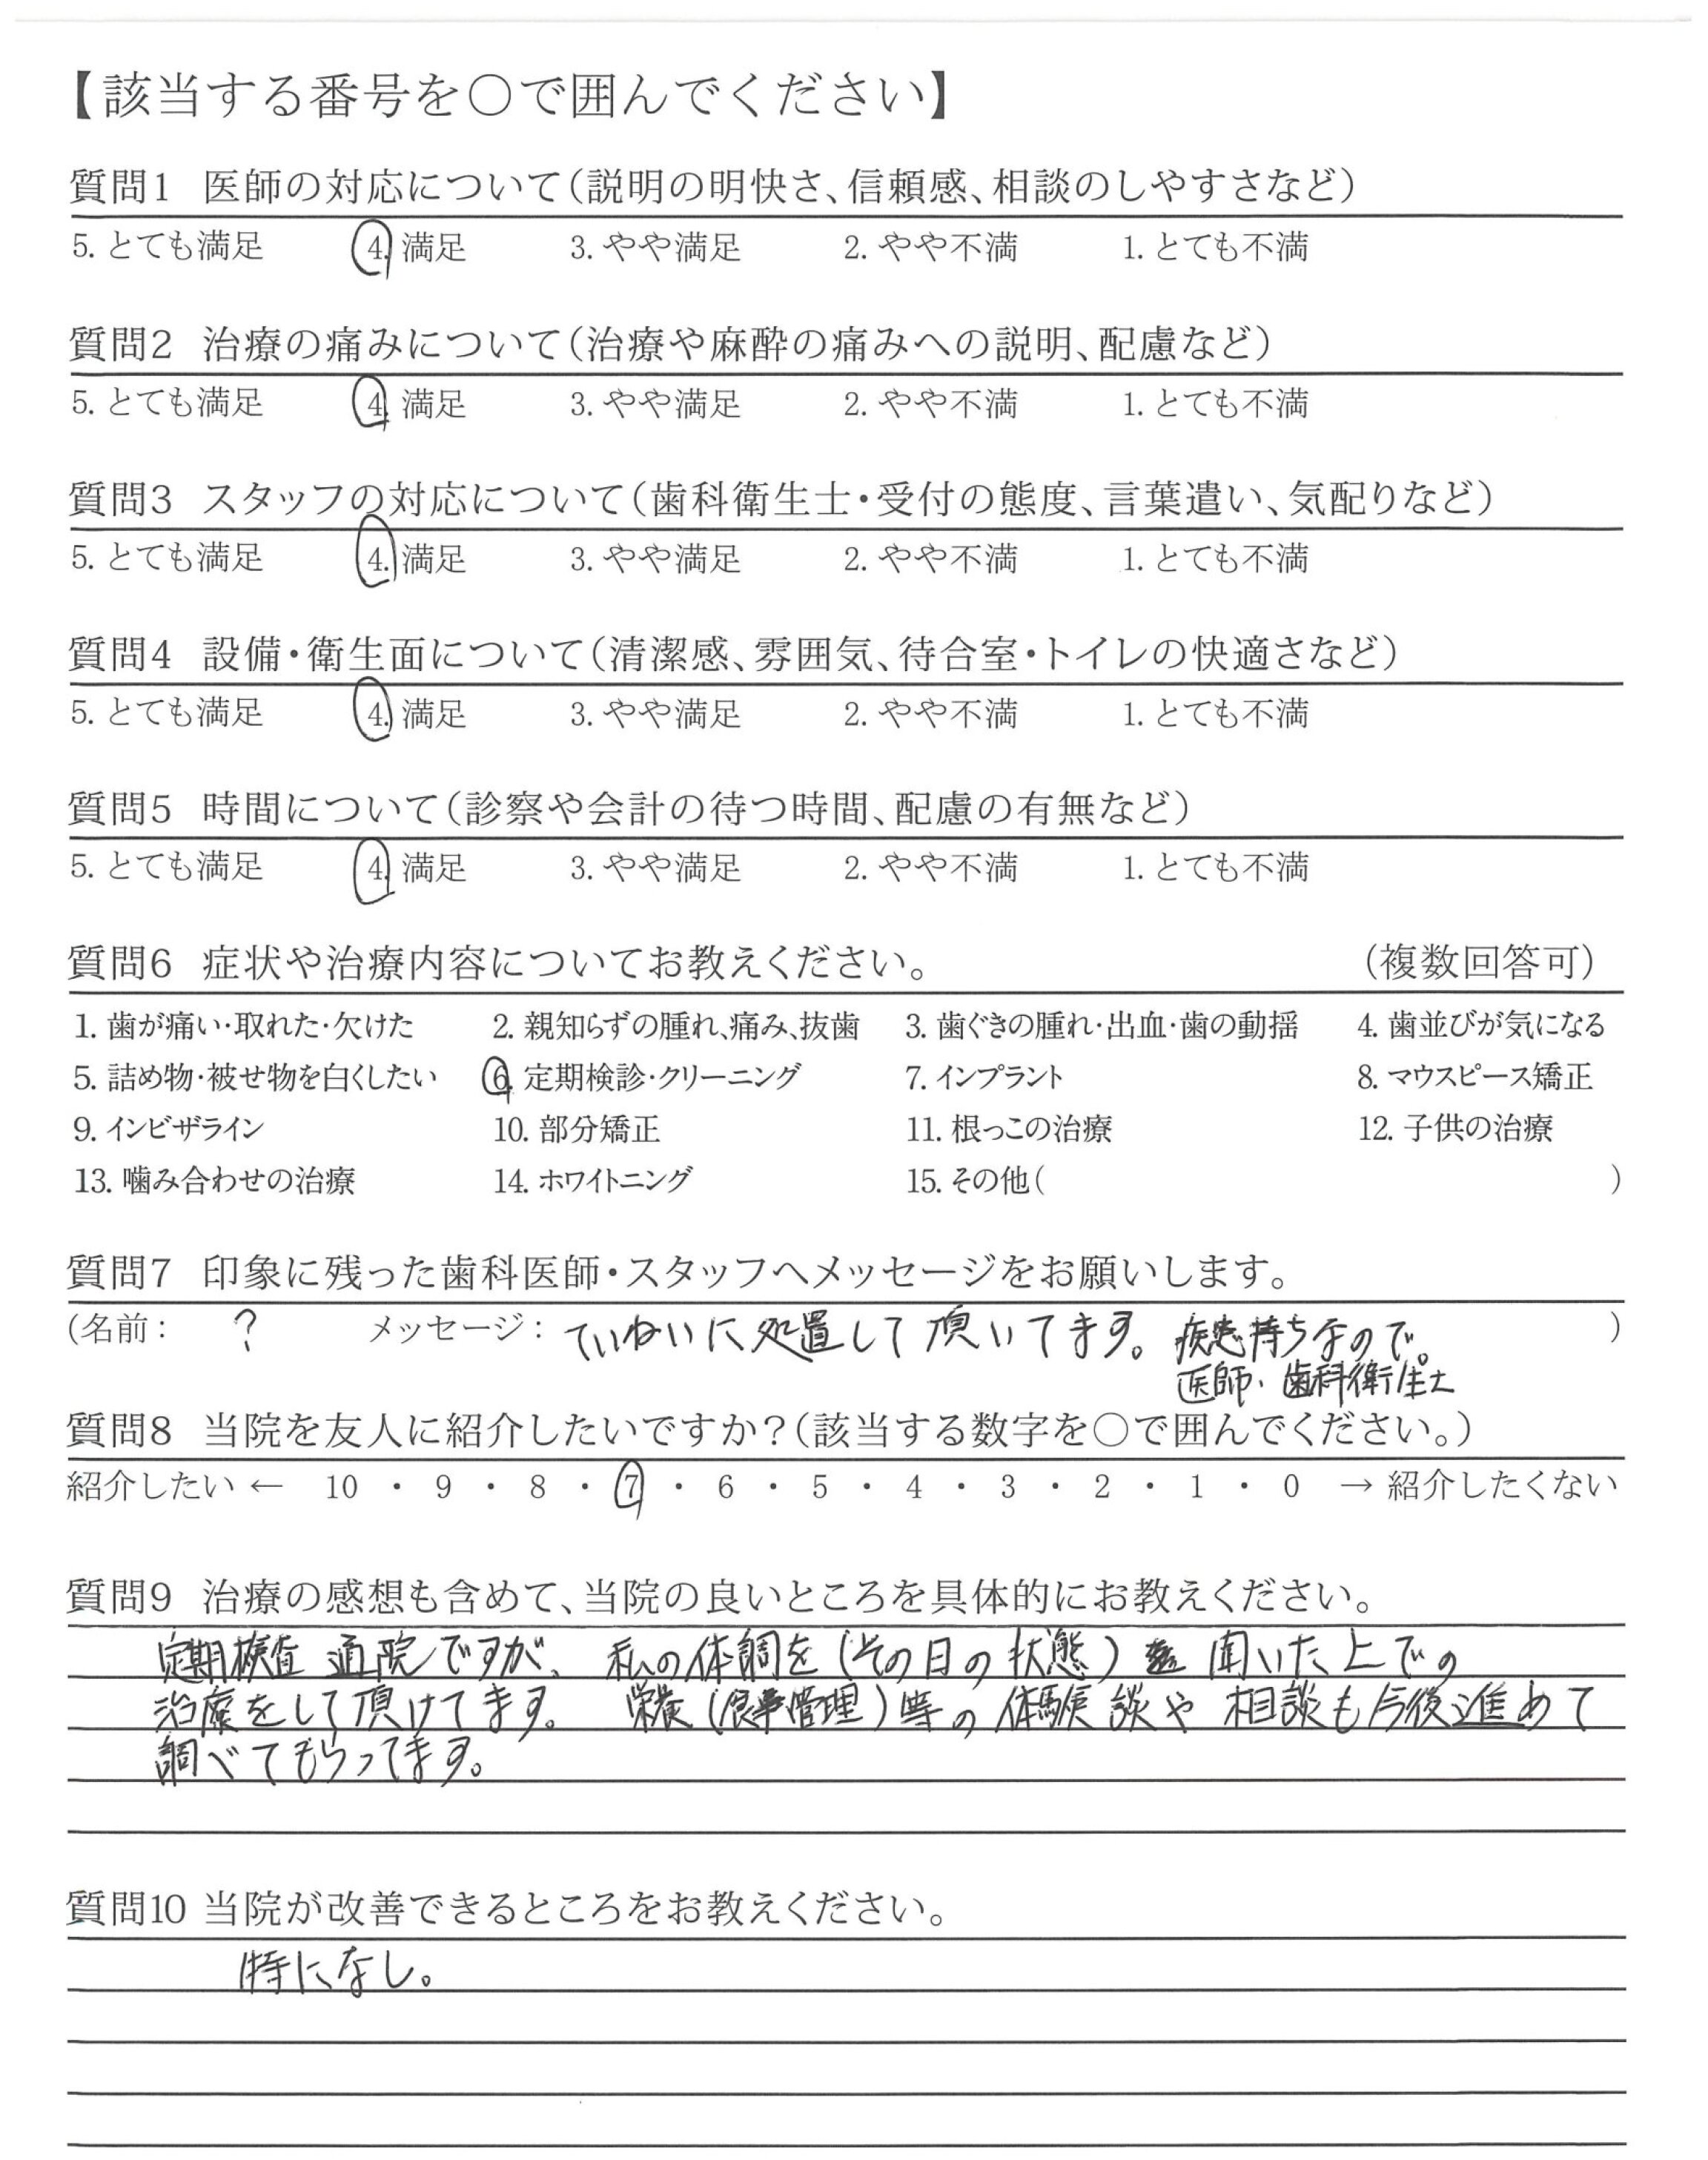 【該当する番号を〇で囲んでください】
質問1 医師の対応について(説明の明快さ、信頼感、相談のしやすさなど)
5. とても満足 4. 満足 3. やや満足 2. やや不満 1. とても不満
質問2 治療の痛みについて(治療や麻酔の痛みへの説明、配慮など)
5. とても満足 4. 満足 3. やや満足 2. やや不満 1. とても不満
質問3 スタッフの対応について(歯科衛生士・受付の態度、言葉遣い、気配りなど)
5. とても満足 4. 満足 3. やや満足 2. やや不満 1. とても不満
質問4 設備・衛生面について(清潔感、雰囲気、待合室・トイレの快適さなど)
5. とても満足 4. 満足 3. やや満足 2. やや不満 1. とても不満
質問5 時間について(診察や会計の待つ時間、配慮の有無など)
5. とても満足 4. 満足 3. やや満足 2. やや不満 1. とても不満
質問6 症状や治療内容についてお教えください。 (複数回答可)
1. 歯が痛い・取れた・欠けた 2. 親知らずの腫れ、痛み、抜歯 3. 歯ぐきの腫れ・出血・歯の動揺 4. 歯並びが気になる
5. 詰め物・被せ物を白くしたい 6. 定期検診・クリーニング 7. インプラント 8. マウスピース矯正
9. インビザライン 10. 部分矯正 11. 根っこの治療 12. 子供の治療
13. 噛み合わせの治療 14. ホワイトニング 15. その他( )
質問7 印象に残った歯科医師・スタッフへメッセージをお願いします。
(名前: ? メッセージ: ていねいに処置して頂いてます。疾患持ちなので。 )
医師・歯科衛生士
質問8 当院を友人に紹介したいですか?(該当する数字を〇で囲んでください。)
紹介したい ← 10 ・ 9 ・ 8 ・ 7 ・ 6 ・ 5 ・ 4 ・ 3 ・ 2 ・ 1 ・ 0 → 紹介したくない
質問9 治療の感想も含めて、当院の良いところを具体的にお教えください。
定期検査 通院ですが、私の体調を(その日の状態) 聞いた上での
治療をして頂けてます。 栄養(食事管理)等の体験談や相談も今後進めて
調べてもらってます。
質問10 当院が改善できるところをお教えください。
特になし。